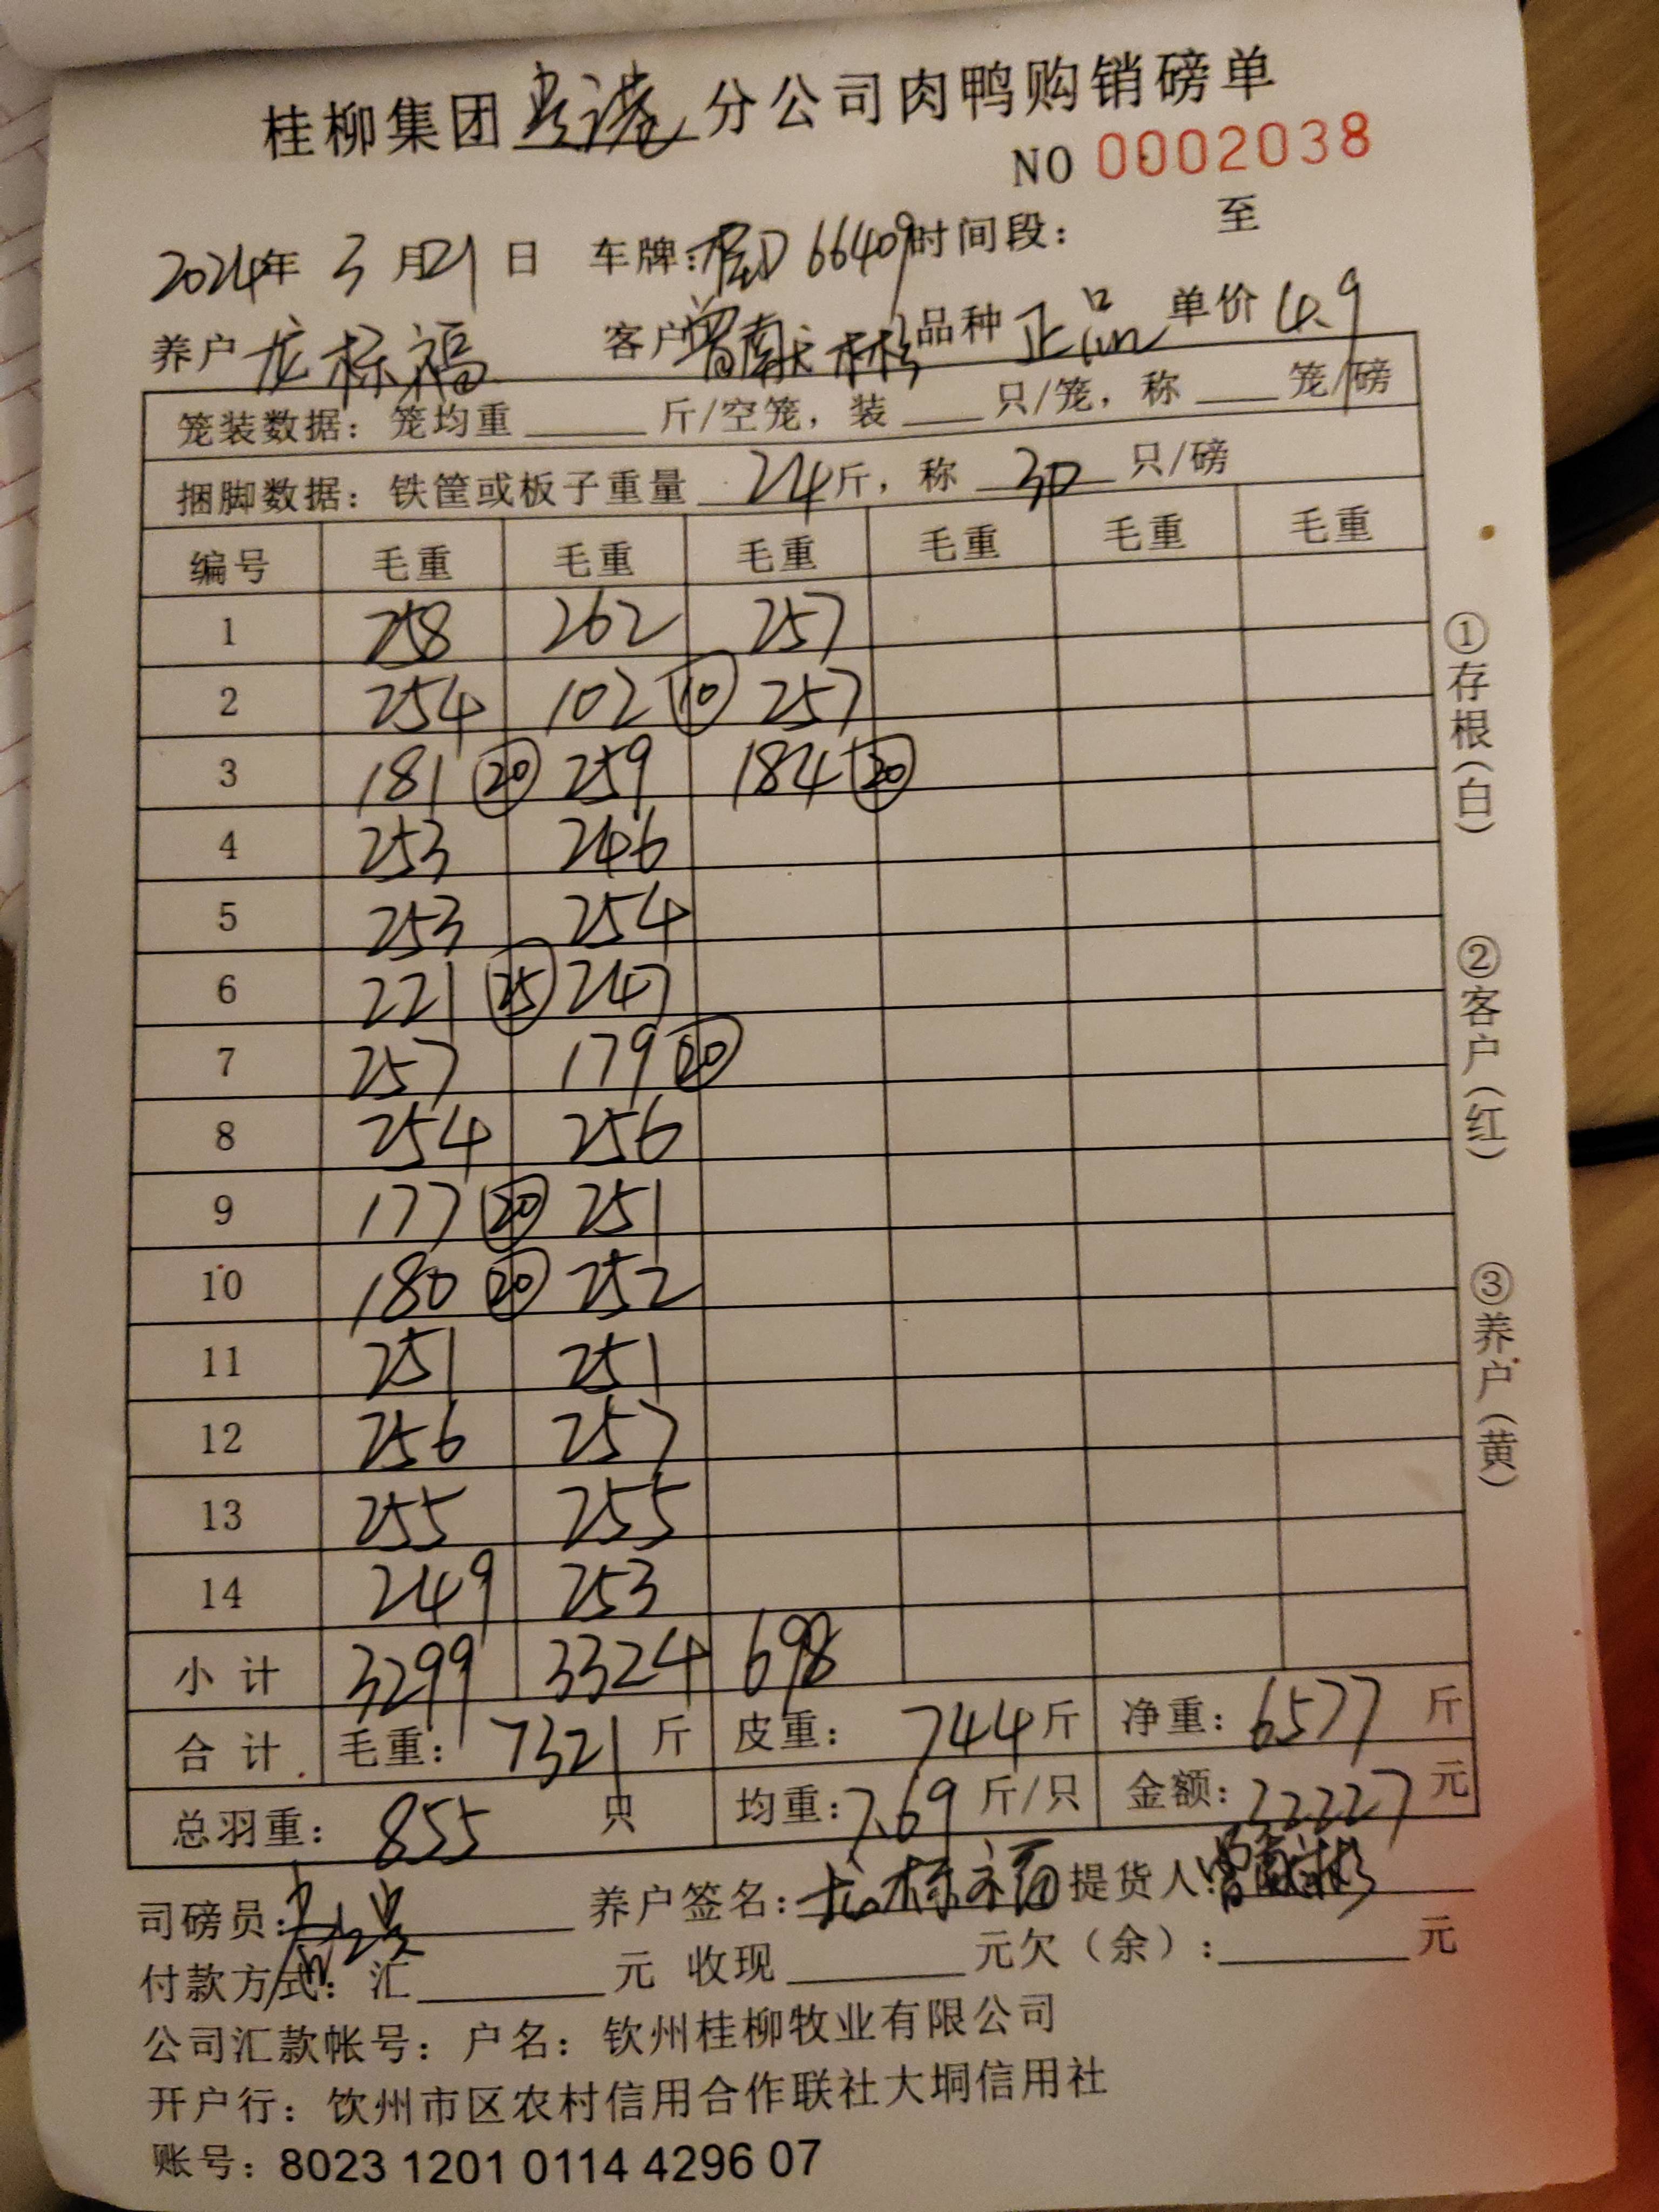 桂柳集团贵港分公司肉鸭购销磅单
NO 0002038
2024年 3月21日 车牌:桂D 66409 时间段: 至
养户 龙标福 客户 曾献彬 品种 正品 单价 4.9
笼装数据:笼均重 斤/空笼,装 只/笼,称 笼/磅
捆脚数据:铁筐或板子重量 24斤,称 30 只/磅
编号 毛重 毛重 毛重 毛重 毛重 毛重
1 258 262 257
2 254 102 ⑩ 257
3 181 ⑳ 259 184 ⑳
4 253 246
5 253 254
6 221 ㉕ 247
7 257 179 ⑳
8 254 256
9 177 ⑳ 251
10 180 ⑳ 252
11 251 251
12 256 257
13 255 255
14 249 253
小计 3299 3324 698
合计 毛重:7321斤 皮重:744斤 净重:6577斤
总羽重:855 只 均重:7.69 斤/只 金额:32227元
司磅员: 养户签名:龙标福 提货人:曾献彬
付款方式:汇 元 收现 元欠(余): 元
公司汇款帐号:户名:钦州桂柳牧业有限公司
开户行:饮州市区农村信用合作联社大垌信用社
账号:8023 1201 0114 4296 07
①存根(白)
②客户(红)
③养户(黄)